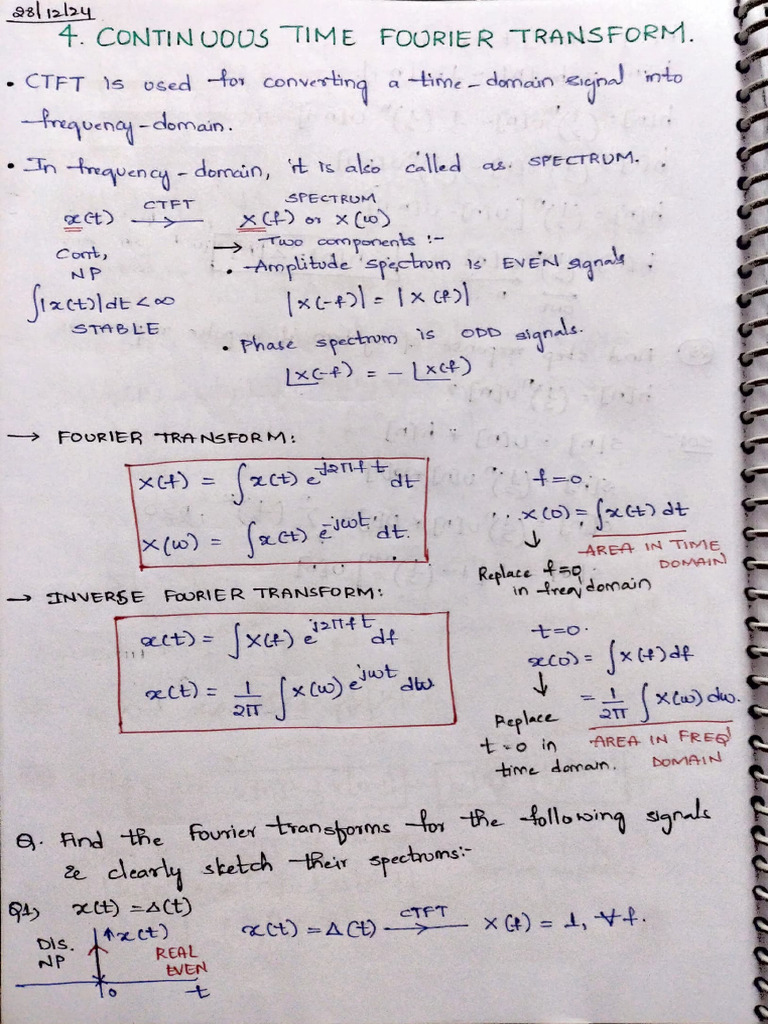 28/12/24
4. CONTINUOUS TIME FOURIER TRANSFORM.
• CTFT is used for converting a time-domain signal into
frequency-domain.
• In frequency-domain, it is also called as SPECTRUM.
x(t) —CTFT→ X(f) or X(ω)
SPECTRUM
Cont, NP
→ Two components :-
• Amplitude spectrum is EVEN signals
∫|x(t)|dt < ∞
|X(-f)| = |X(f)|
STABLE
• Phase spectrum is ODD signals.
∠X(-f) = - ∠X(f)
→ FOURIER TRANSFORM:
X(f) = ∫x(t) e^{-j2πft} dt
f=0.
X(ω) = ∫x(t) e^{-jωt} dt.
∴ X(0) = ∫x(t) dt
↓ AREA IN TIME DOMAIN
Replace f=0 in freq domain
→ INVERSE FOURIER TRANSFORM:
x(t) = ∫X(f) e^{j2πft} df
t=0.
x(0) = ∫X(f) df
x(t) = 1/2π ∫X(ω) e^{jωt} dω
= 1/2π ∫X(ω) dω.
↓ Replace t=0 in time domain.
AREA IN FREQ DOMAIN
Q. Find the Fourier transforms for the following signals
& clearly sketch their spectrums:-
Q1) x(t) = Δ(t)
x(t) = Δ(t) —CTFT→ X(f) = 1, ∀f.
DIS. NP
↑x(t)
REAL EVEN
0
t